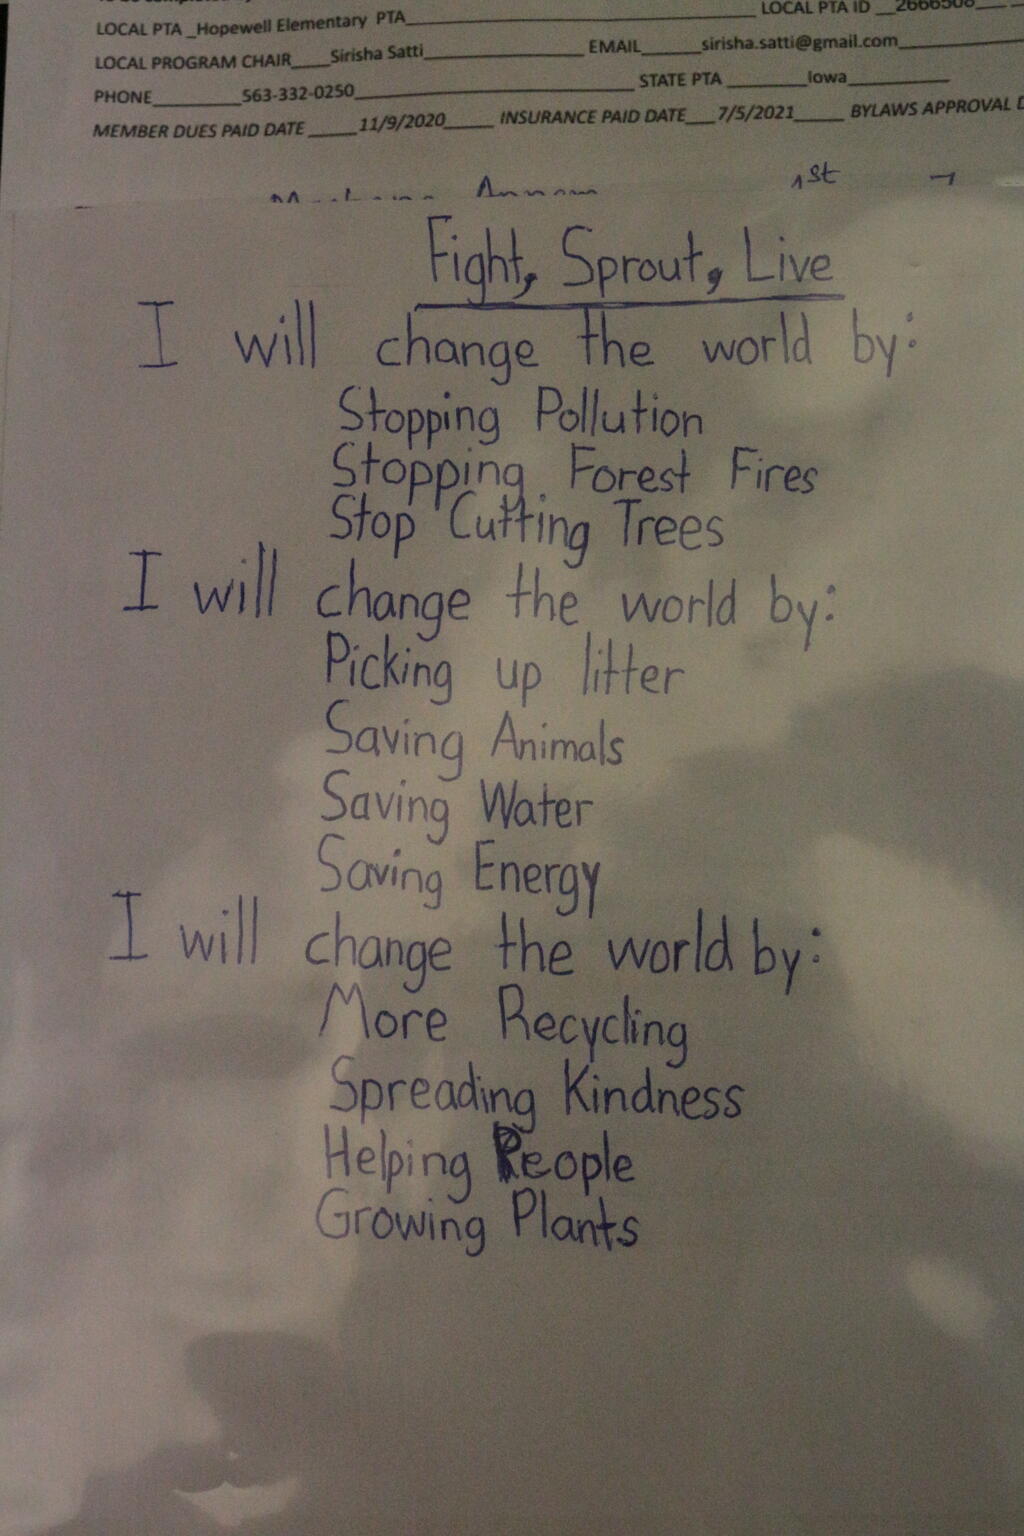 LOCAL PTA _Hopewell Elementary PTA____ LOCAL PTA ID __2666508____
LOCAL PROGRAM CHAIR____Sirisha Satti____ EMAIL____sirisha.satti@gmail.com____
PHONE____563-332-0250____ STATE PTA ____Iowa____
MEMBER DUES PAID DATE ____11/9/2020____ INSURANCE PAID DATE__7/5/2021____ BYLAWS APPROVAL D
1st
Fight, Sprout, Live
I will change the world by:
Stopping Pollution
Stopping Forest Fires
Stop Cutting Trees
I will change the world by:
Picking up litter
Saving Animals
Saving Water
Saving Energy
I will change the world by:
More Recycling
Spreading Kindness
Helping People
Growing Plants